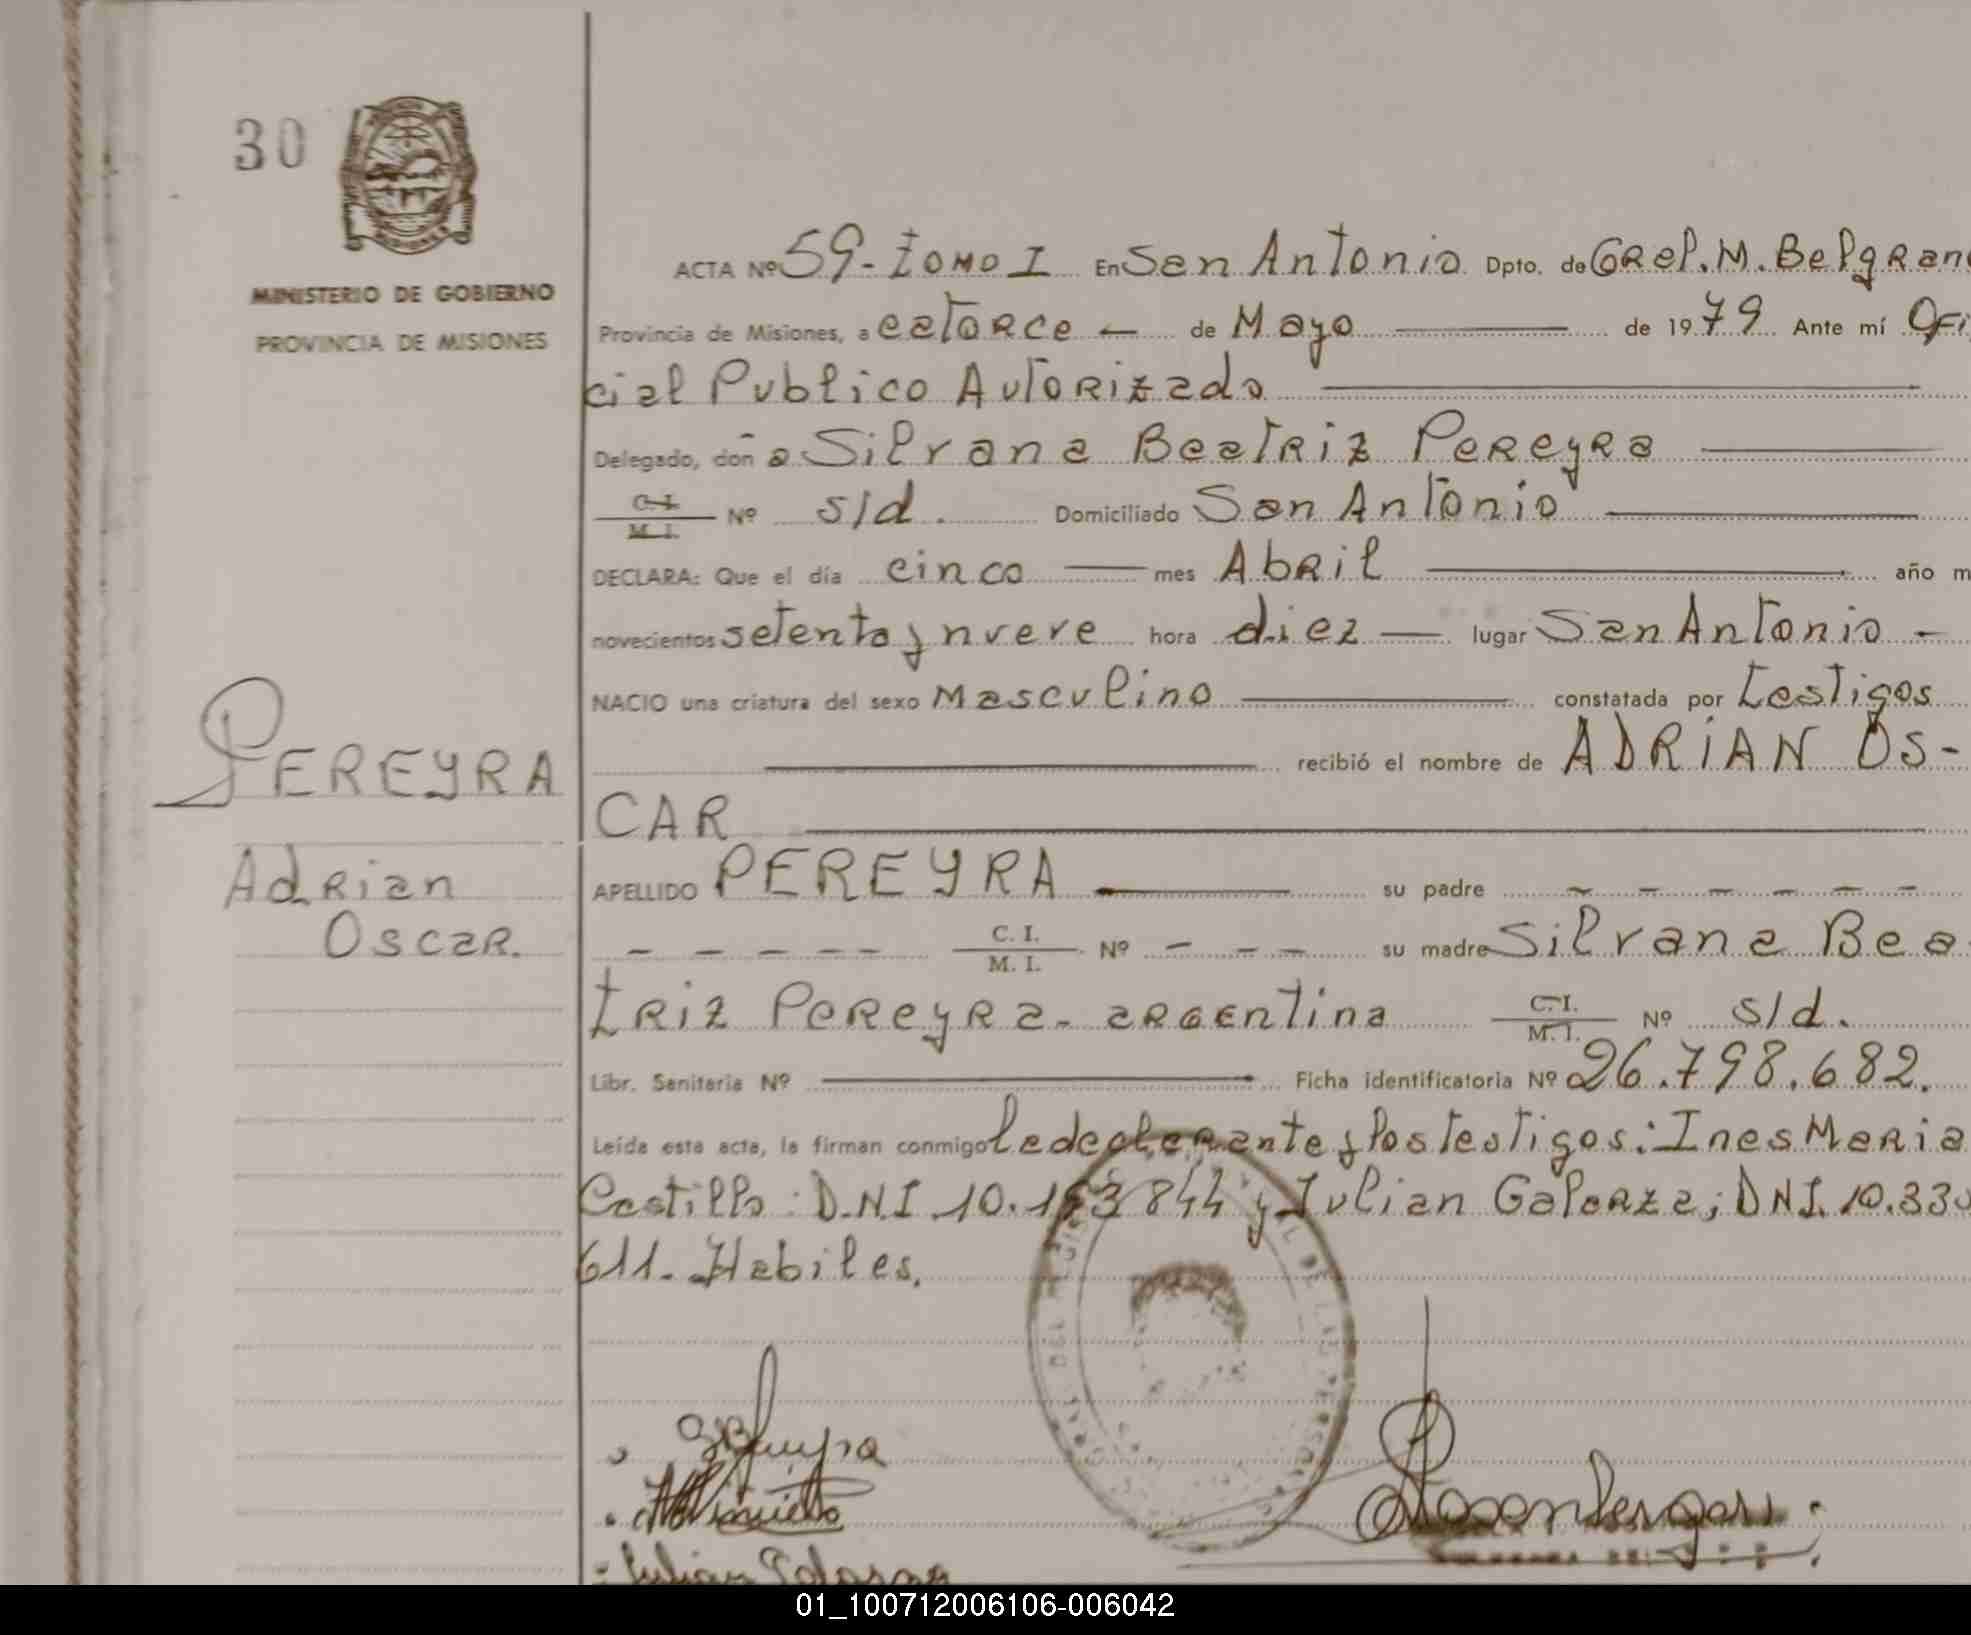 30
MINISTERIO DE GOBIERNO
PROVINCIA DE MISIONES
PEREYRA
Adrian
Oscar.
ACTA Nº 59-Tomo I En San Antonio Dpto. de GRel.M.Belgrano
Provincia de Misiones, a catorce — de Mayo — de 1979 Ante mí Ofi
cial Publico Autorizado
Delegado, doña Silvana Beatriz Pereyra
C.I. M.I. Nº s/d. Domiciliado San Antonio
DECLARA: Que el día cinco — mes Abril — año m
novecientos setenta y nueve hora diez — lugar San Antonio -
NACIO una criatura del sexo Masculino — constatada por testigos
— recibió el nombre de ADRIAN OS-
CAR
APELLIDO PEREYRA — su padre - - - - - -
- - - - - C. I. M. I. Nº - - - su madre Silvana Bea
triz Pereyra- argentina C.I. M.I. Nº s/d.
Libr. Sanitaria Nº — Ficha identificatoria Nº 26.798.682.
Leída esta acta, la firman conmigo la declarante y los testigos: Ines Maria
Castillo: D.N.I. 10.153844 y Julian Galarza; DNI. 10.330
611. Habiles.
Julian Galarza
01_100712006106-006042